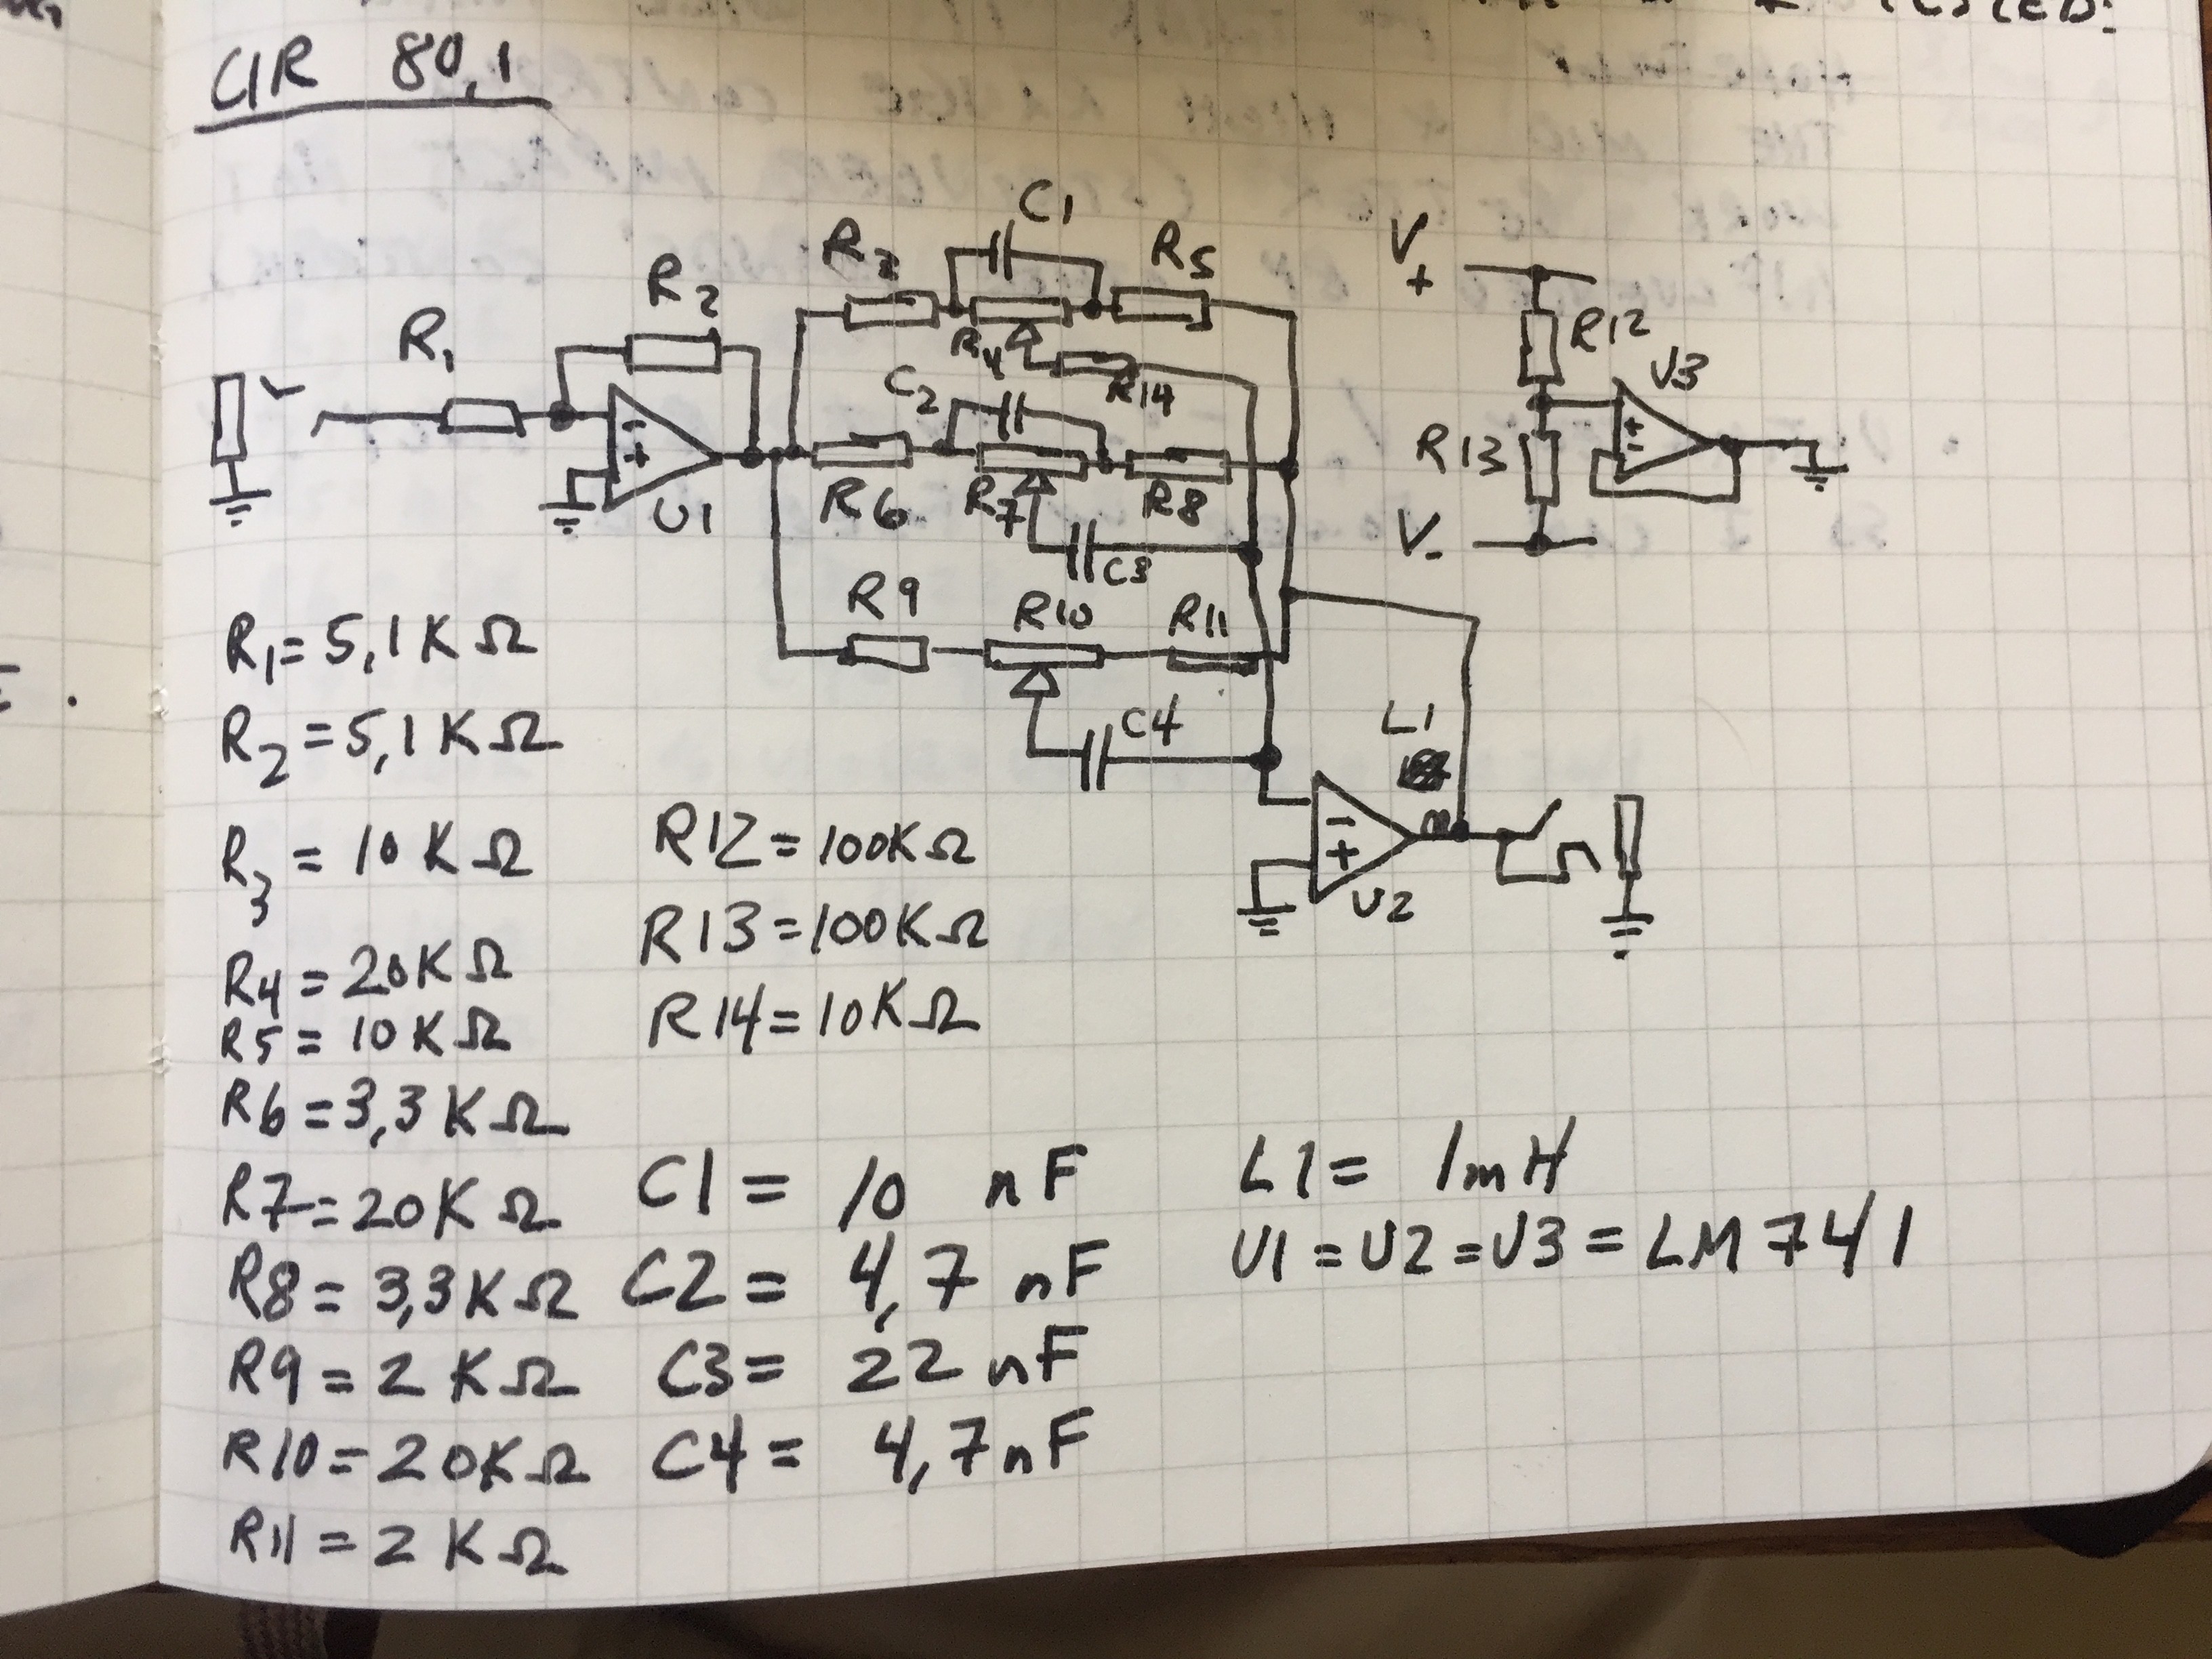 CIR 80,1
C1
R3
R5
R2
R1
R4
R14
C2
U1
-
+
R6
R7
R8
C3
R9
R10
R11
C4
V+
R12
U3
+
-
R13
V-
L1
-
+
U2
R1 = 5,1 K Ω
R2 = 5,1 K Ω
R3 = 10 K Ω
R4 = 20 K Ω
R5 = 10 K Ω
R6 = 3,3 K Ω
R7 = 20 K Ω
R8 = 3,3 K Ω
R9 = 2 K Ω
R10 = 20 K Ω
R11 = 2 K Ω
R12 = 100K Ω
R13 = 100K Ω
R14 = 10K Ω
C1 = 10 nF
C2 = 4,7 nF
C3 = 22 nF
C4 = 4,7 nF
L1 = 1mH
U1 = U2 = U3 = LM741